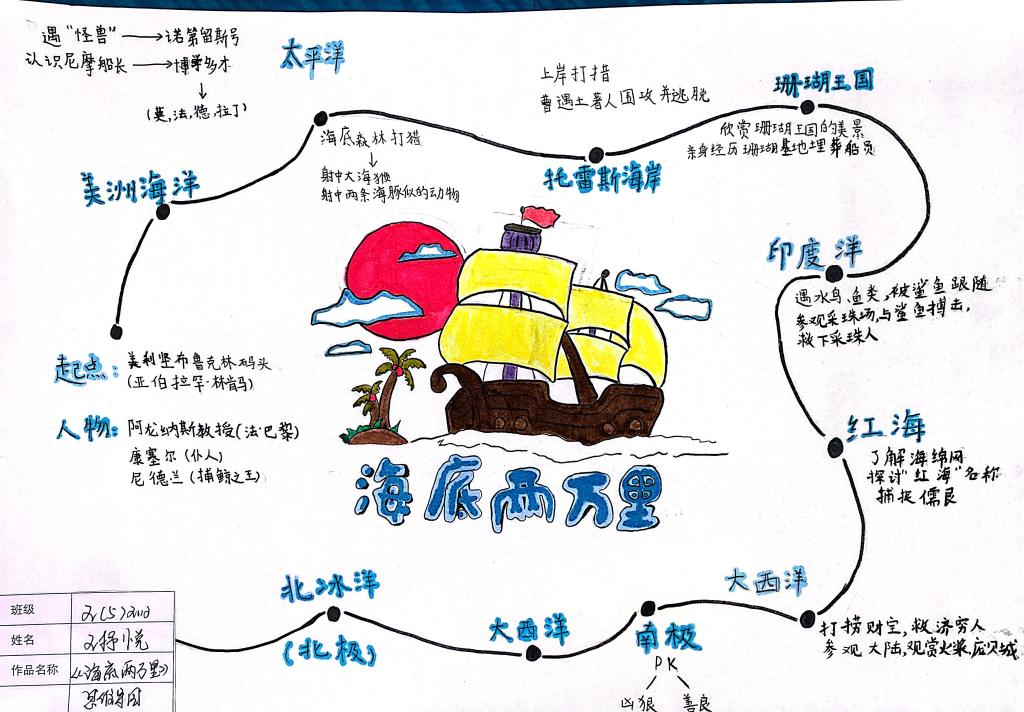 遇“怪兽”→诺第留斯号
认识尼摩船长→博学多才
↓
(英,法,德,拉丁)
美洲海洋
起点:
美利坚布鲁克林码头
(亚伯拉罕·林肯码)
人物:
阿龙纳斯教授(法·巴黎)
康塞尔(仆人)
尼德兰(捕鲸之王)
太平洋
海底森林打猎
↓
射中大海獭
射中两条海豚似的动物
上岸打措
曹遇土著人围攻并逃脱
托雷斯海岸
珊瑚王国
欣赏珊瑚王国的美景
亲身经历珊瑚墓地埋葬船员
印度洋
遇水鸟、鱼类,被鲨鱼跟随
参观采珠场,与鲨鱼搏击,
救下采珠人
红海
了解海绵网
探讨“红海”名称
捕捉儒艮
大西洋
打捞财宝,救济穷人
参观大陆,观赏火浆,庞贝城
南极
PK
凶狠
善良
大西洋
北冰洋
(北极)
海底两万里
班级
姓名
作品名称
《海底两万里》